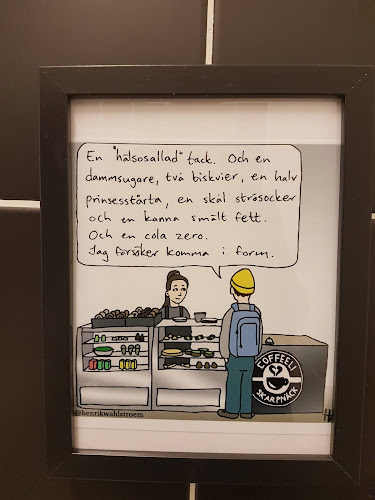 En "hälsosallad" tack. Och en
dammsugare, två biskvier, en halv
prinsesstårta, en skål strösocker
och en kanna smält fett.
Och en cola zero.
Jag försöker komma i form.
COFFEELI
SKARPNÄCK
@henrikwahlstroem